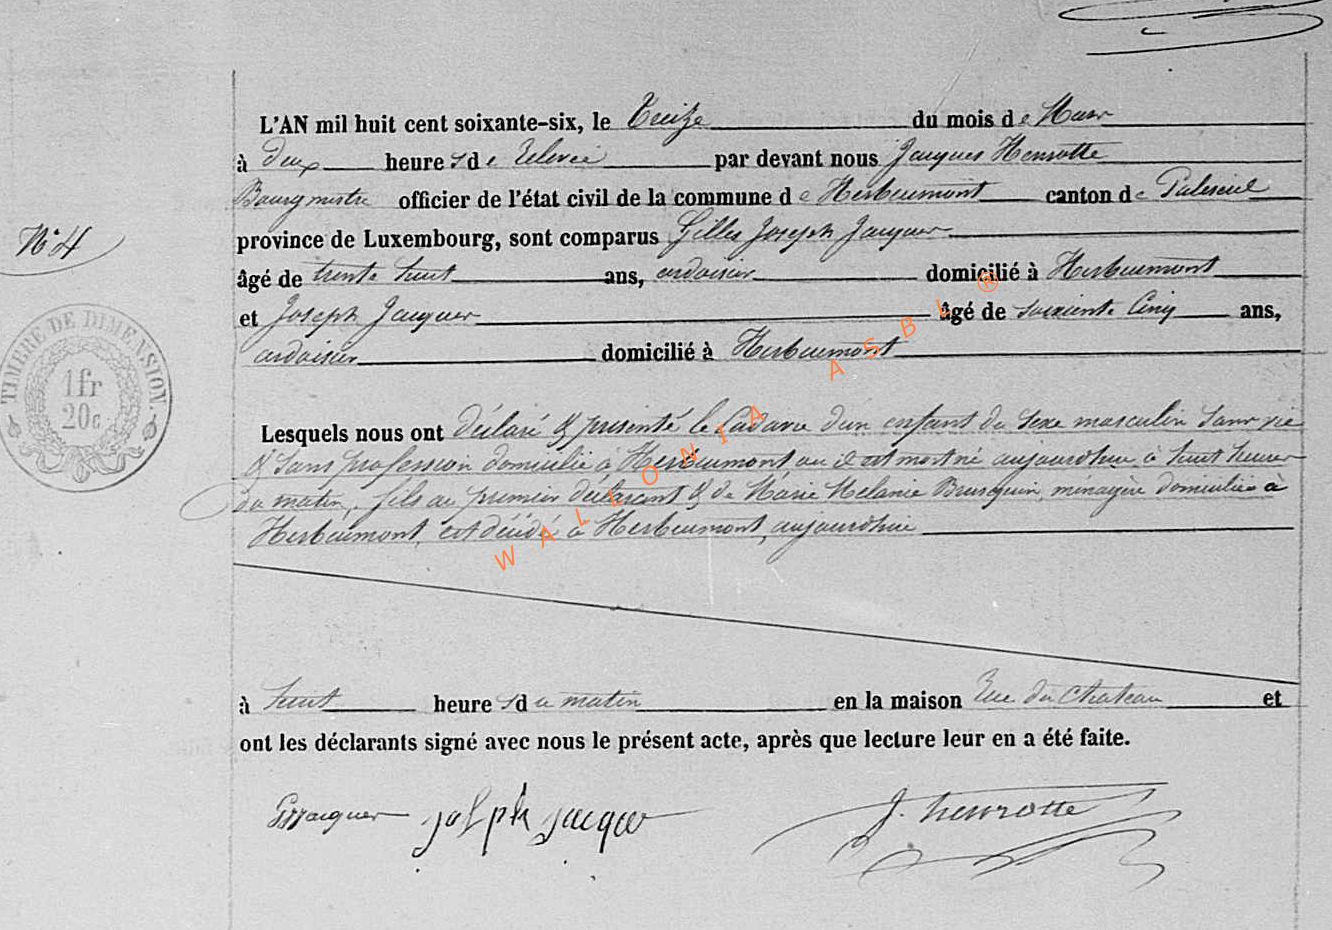 L'AN mil huit cent soixante-six, le treize du mois de Mars
à deux heures de relevée par devant nous Jacques Henrotte
Bourgmestre officier de l'état civil de la commune de Herbeumont canton de Paliseul
province de Luxembourg, sont comparus Gilles Joseph Jacques
N° 4
âgé de trente huit ans, ardoisier domicilié à Herbeumont
et Joseph Jacques âgé de soixante cinq ans,
ardoisier domicilié à Herbeumont
TIMBRE DE DIMENSION.
1 fr
20c
Lesquels nous ont déclaré & présenté le Cadavre d'un enfant du sexe masculin sans vie
& sans profession domicilié à Herbeumont, où il est mort né aujourdhui à huit heures
du matin, fils du premier déclarant & de Marie Melanie Brusquin, menagère domiciliée à
Herbeumont, est décédé à Herbeumont, aujourdhui
WALLONIA ASBL ®
à huit heures du matin en la maison Rue du Chateau et
ont les déclarants signé avec nous le présent acte, après que lecture leur en a été faite.
Jacques joseph jacques J. henrotte